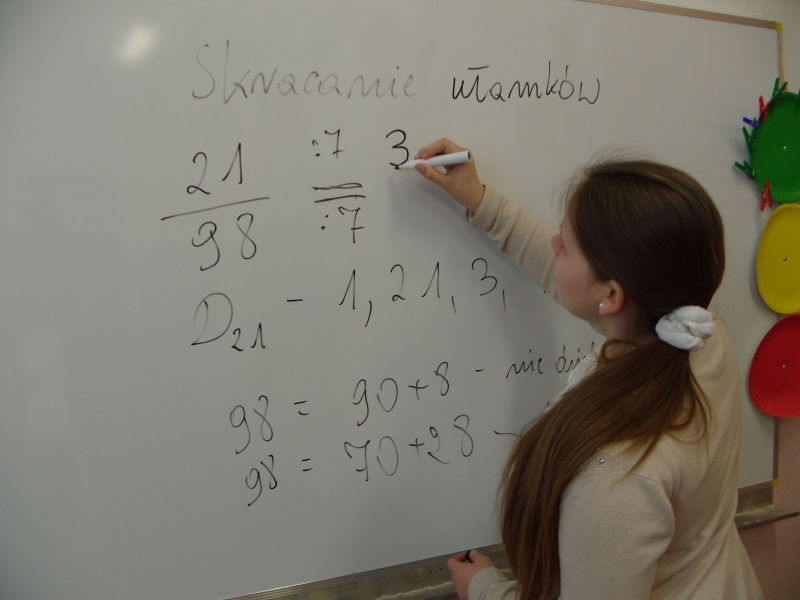 Skracanie ułamków
21 :7 3
98 :7
D21 - 1, 21, 3,
98 = 90+8 - nie
98 = 70+28 -